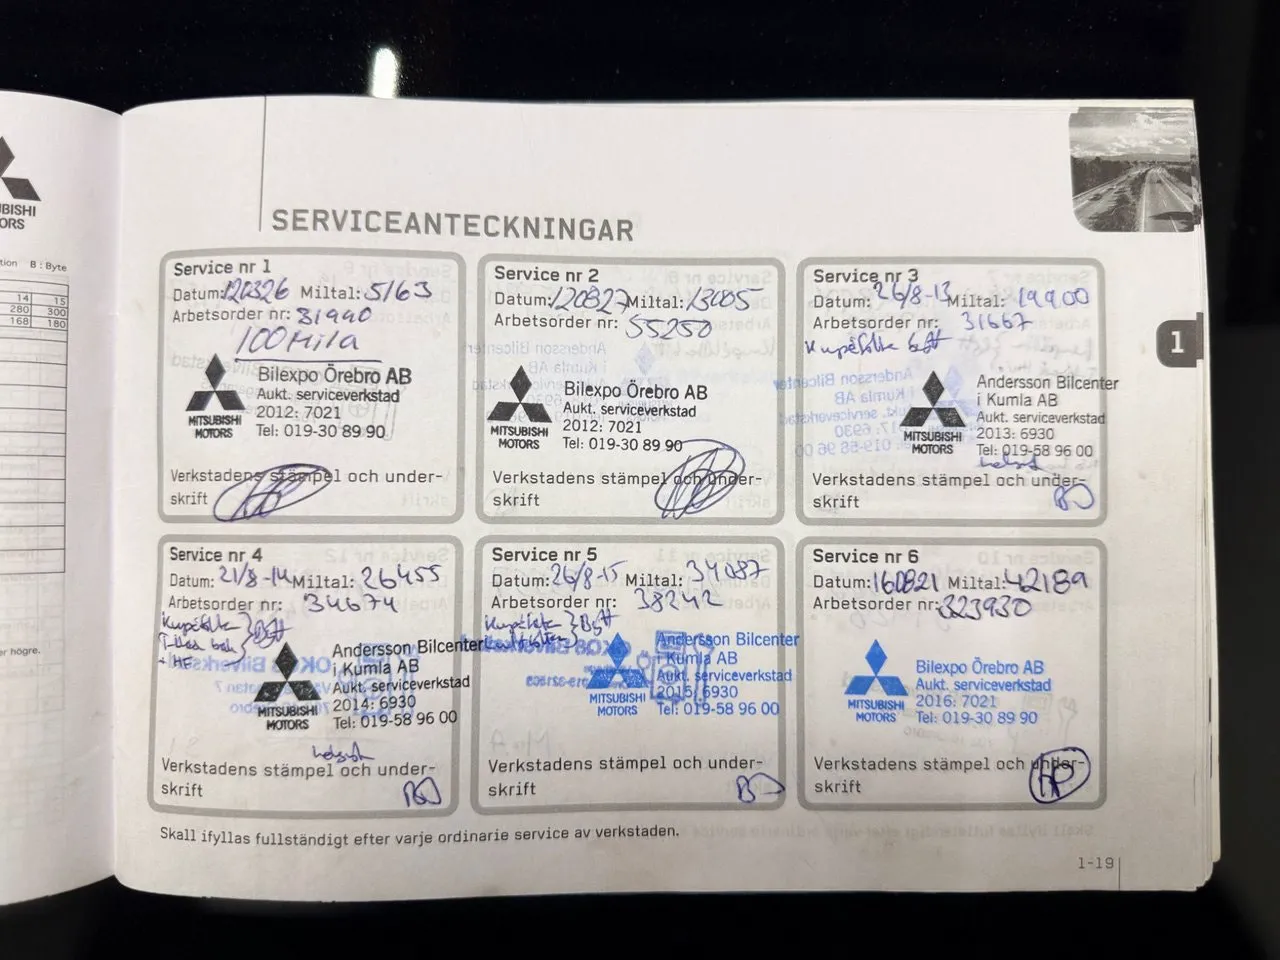 BISHI
ORS
tion B : Byte
14 15
280 300
168 180
er högre.
SERVICEANTECKNINGAR
Service nr 1
Datum: 120326 Miltal: 5163
Arbetsorder nr: 31990
100 Mila
MITSUBISHI
MOTORS
Bilexpo Örebro AB
Aukt. serviceverkstad
2012: 7021
Tel: 019-30 89 90
Verkstadens stämpel och under-
skrift
Service nr 2
Datum: 120827 Miltal: 13005
Arbetsorder nr: 55250
MITSUBISHI
MOTORS
Bilexpo Örebro AB
Aukt. serviceverkstad
2012: 7021
Tel: 019-30 89 90
Verkstadens stämpel och under-
skrift
Service nr 3
Datum: 26/8-13 Miltal: 19900
Arbetsorder nr: 31667
Kupéfilter bytt
MITSUBISHI
MOTORS
Andersson Bilcenter
i Kumla AB
Aukt. serviceverkstad
2013: 6930
Tel: 019-58 96 00
Verkstadens stämpel och under-
skrift
Service nr 4
Datum: 21/8-14 Miltal: 26455
Arbetsorder nr: 34674
Kupéfilter Bytt
MITSUBISHI
MOTORS
Andersson Bilcenter
i Kumla AB
Aukt. serviceverkstad
2014: 6930
Tel: 019-58 96 00
Verkstadens stämpel och under-
skrift
Service nr 5
Datum: 26/8-15 Miltal: 34087
Arbetsorder nr: 38242
Kupéfilter Bytt
MITSUBISHI
MOTORS
Andersson Bilcenter
i Kumla AB
Aukt. serviceverkstad
2015: 6930
Tel: 019-58 96 00
Verkstadens stämpel och under-
skrift
Service nr 6
Datum: 160821 Miltal: 42189
Arbetsorder nr: 323930
MITSUBISHI
MOTORS
Bilexpo Örebro AB
Aukt. serviceverkstad
2016: 7021
Tel: 019-30 89 90
Verkstadens stämpel och under-
skrift
Skall ifyllas fullständigt efter varje ordinarie service av verkstaden.
1
1-19